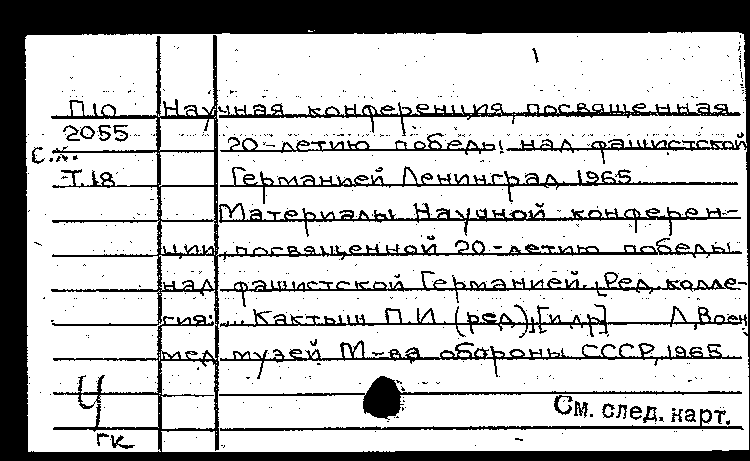 1
П10 Научная конференция, посвященная
2055
20-летию победы над фашистской
с.х.
Т.18 Германией Ленинград 1965
Материалы Научной конферен-
ции, посвященной 20-летию победы
над фашистской Германией. [Ред. колле-
гия: ... Кактыш П.И. (ред), [и др] Л, Воен
мед музей М-ва обороны СССР, 1965
Ч
гк
См. след. карт.